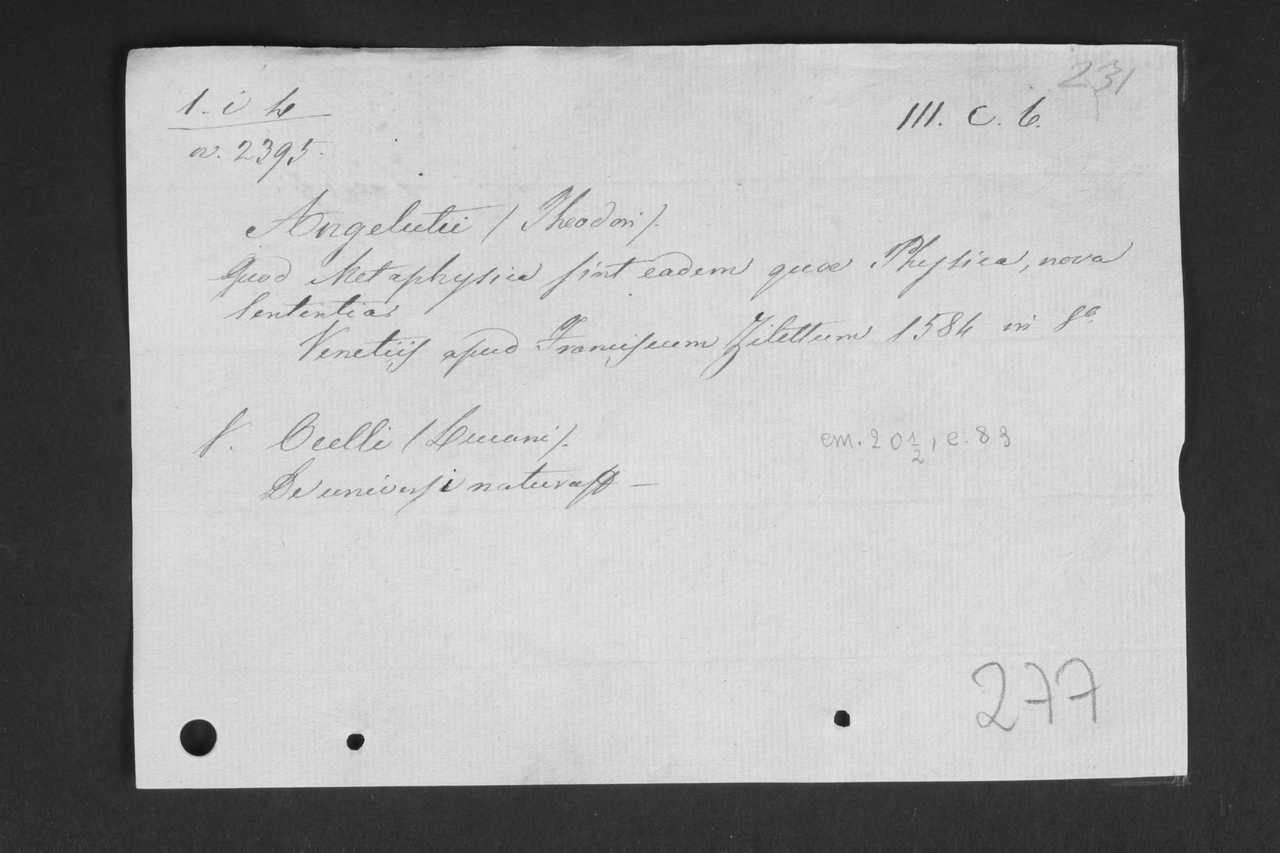 231
1. i 4
III. c. 6.
n. 2395.
Angelutii (Theodori).
Quod Metaphysica sint eadem quae Physica, nova
Sententia
Venetiis apud Franciscum Zilettum 1584 in 8º
V. Ocelli (Lucani).
cm. 20 1/2, c. 83
De universi natura —
277